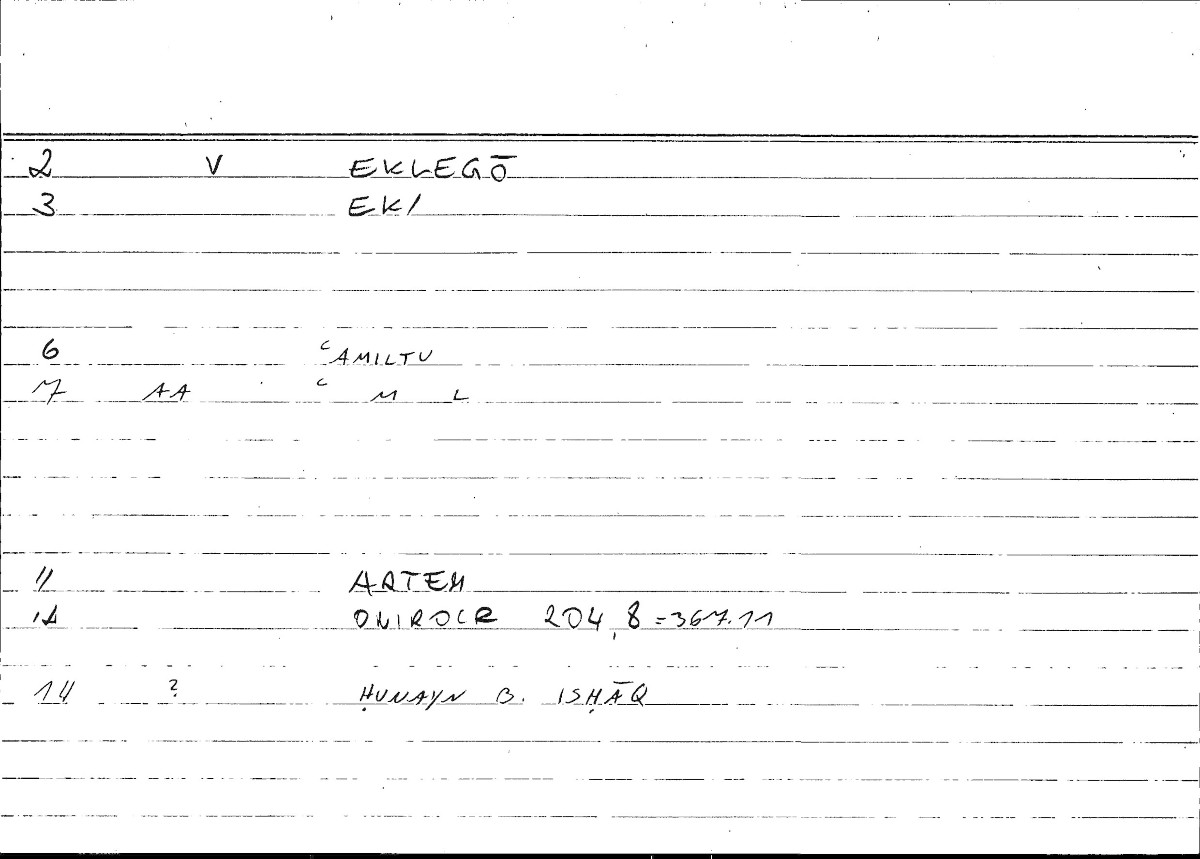 2 V EKLEGŌ
3 EK/
6 ʿAMILTU
7 AA ʿ M L
11 ARTEM
12 ONIROCR 204,8=367.11
14 ? ḤUNAYN B. ISḤĀQ